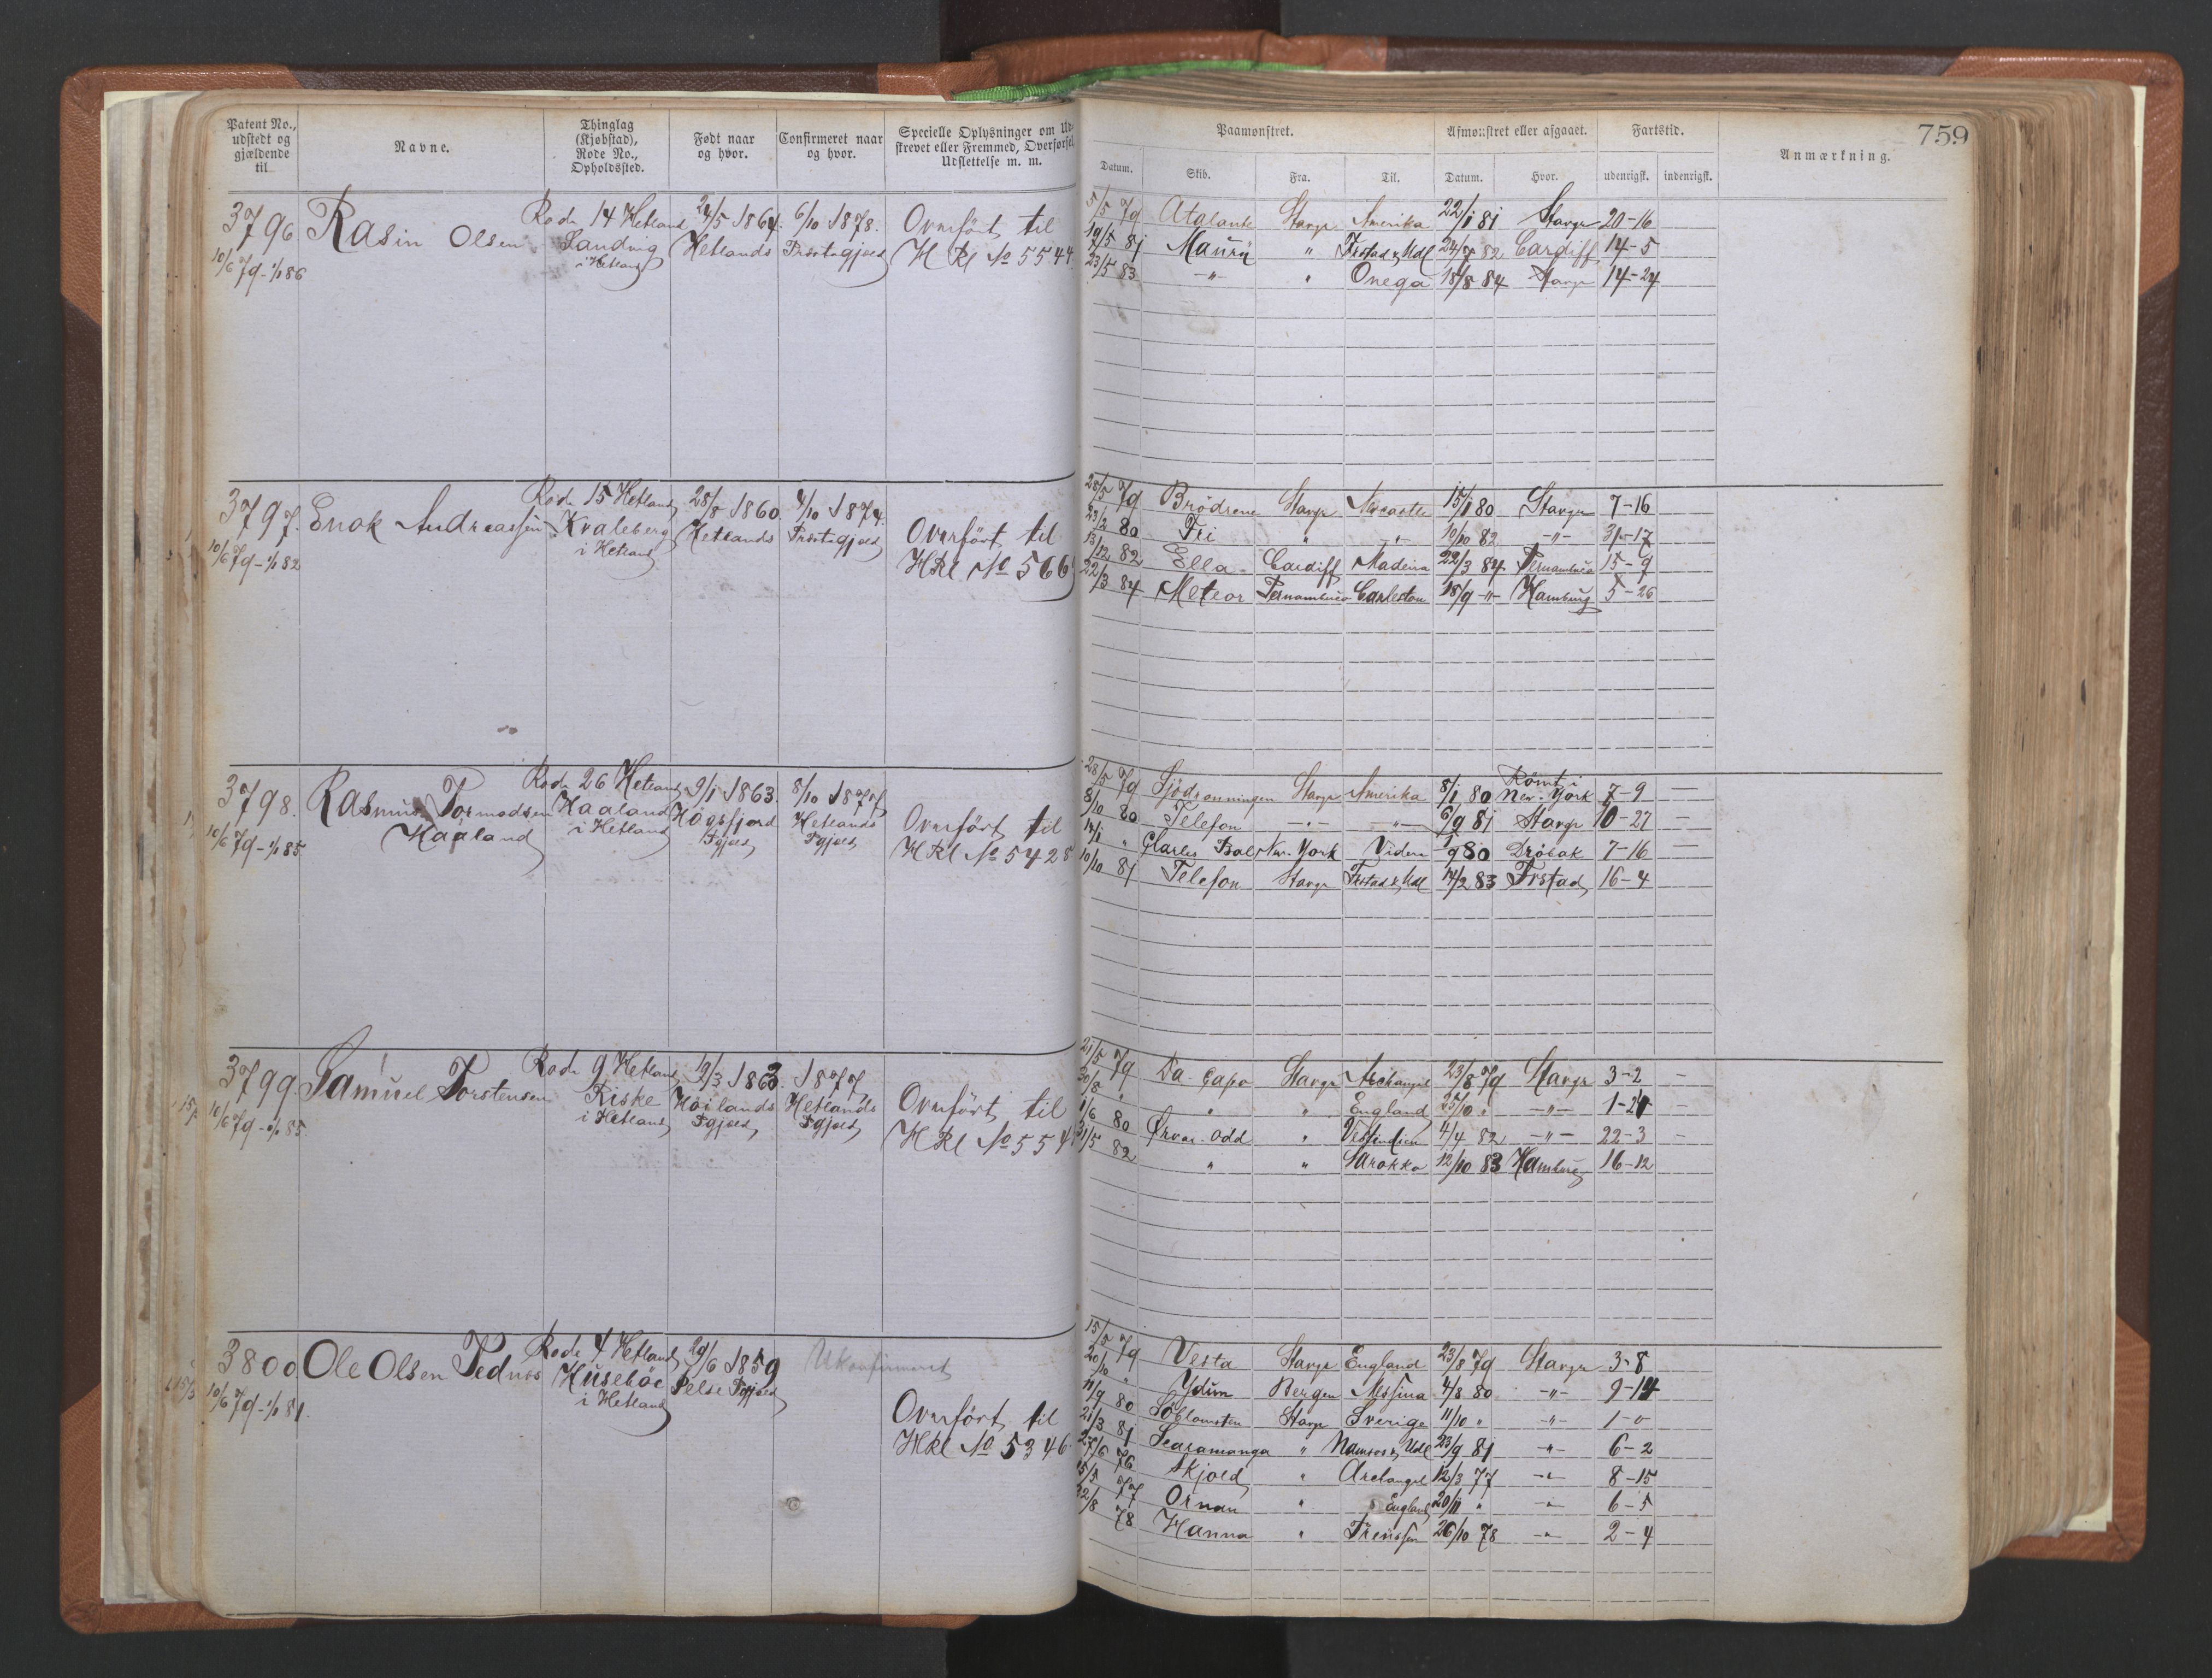 Patent No., udstedt og gjældende til
Navne.
Thinglag (Kjøbstad), Rode No., Opholdssted.
Født naar og hvor.
Confirmeret naar og hvor.
Specielle Oplysninger om Ud-
skrevet eller Fremmed, Overførsel
Udslettelse m. m.
Paamønstret.
Afmønstret eller afgaaet.
Fartstid.
Anmærkning.
759
Datum. Skib. Fra. Til. Datum. Hvor. udenrigsk. indenrigsk.
3796. Rasin Olsen Rode 14 Hetland 24/5 1864. 6/10 1878. Overført til
10/6 79 - 1/1 86 Sandvig i Hetland Hetlands Præstegjæld H Rl No 5544
5/5 79 Atalante Stavgr Amerika 22/1 81 Stavgr 20-16
19/5 81 " Frstad & Udl 24/7 82 Cardiff 14-5
23/5 83 -"- " Onega 18/8 84 Stavgr 14-24
3797. Enok Andreassen Rode 15 Hetland 28/8 1860. 4/10 1874. Overført til
10/6 79 - 1/1 82 Kvaleberg i Hetland Hetlands Præstegjæld HRl No 566
28/5 79 Brødrene Stavgr Newcastle 15/1 80 Stavgr 7-16
23/2 80 Fri " -"- 10/10 82 -"- 31-17
13/12 82 Ella Cardiff Madeira 22/3 84 Pernambuco 15-9
22/3 84 Meteor Pernambuco Carleston 18/9 -"- Hamburg 5-26
3798. Rasmus Tormodsen Haaland Rode 26 Hetland 9/1 1863. 8/10 1877 Overført til
10/6 79 - 1/1 85 Haaland i Hetland Høgsfjord Pgjæld Hetlands Pgjæld HRl No 5428
28/5 79 Sjødronningen Stavgr Amerika 8/1 80 Rømt i New-York 7-9 —
8/10 80 Telefon -"- -"- 6/9 81 Stavgr 10-27 —
14/1 " Charles Bal New-York 9 80 Drøbak 7-16 —
10/10 81 Telefon Stavgr Frstad & Udl 14/2 83 Frstad 16-4
3799. Samuel Torstensen Rode 9 Hetland 19/3 1863. 1877 Overført til
10/6 79 - 1/1 85. Riske i Hetland Høilands Pgjæld Hetlands Pgjæld HRl No 554
21/5 79 Da Capo Stavgr Archangel 23/8 79 Stavgr 3-2 —
30/8 " " " England 25/10 " -"- —
1/6 80 Ørvar-Odd " Vestindien 4/4 82 -"- 22-3 —
31/5 82 " " Marokko 12/10 83 Hamburg 16-12
3800 Ole Olsen Rode 4 Hetland 29/6 1859 Ukonfirmeret
10/6 79 - 1/1 81. Husebøe i Hetland Pgjæld Overført til
HRl No 5346
15/5 79 Vesta Stavgr England 23/8 79 Stavgr 3-8
20/10 " Ydun Bergen Messina 4/8 80 -"- 9-14
11/9 80 Søblomsten Stavgr Sverige 11/10 " -"- 1-0
21/3 81 Scaramanga " Namsos & Udl 23/9 81 -"- 6-2
27/6 76 Skjold " Archangel 12/3 77 -"- 8-15
15/5 77 Ornan " " England 20/11 " -"- 6-5
22/8 78 Hanna " 26/10 78 -"- 2-4